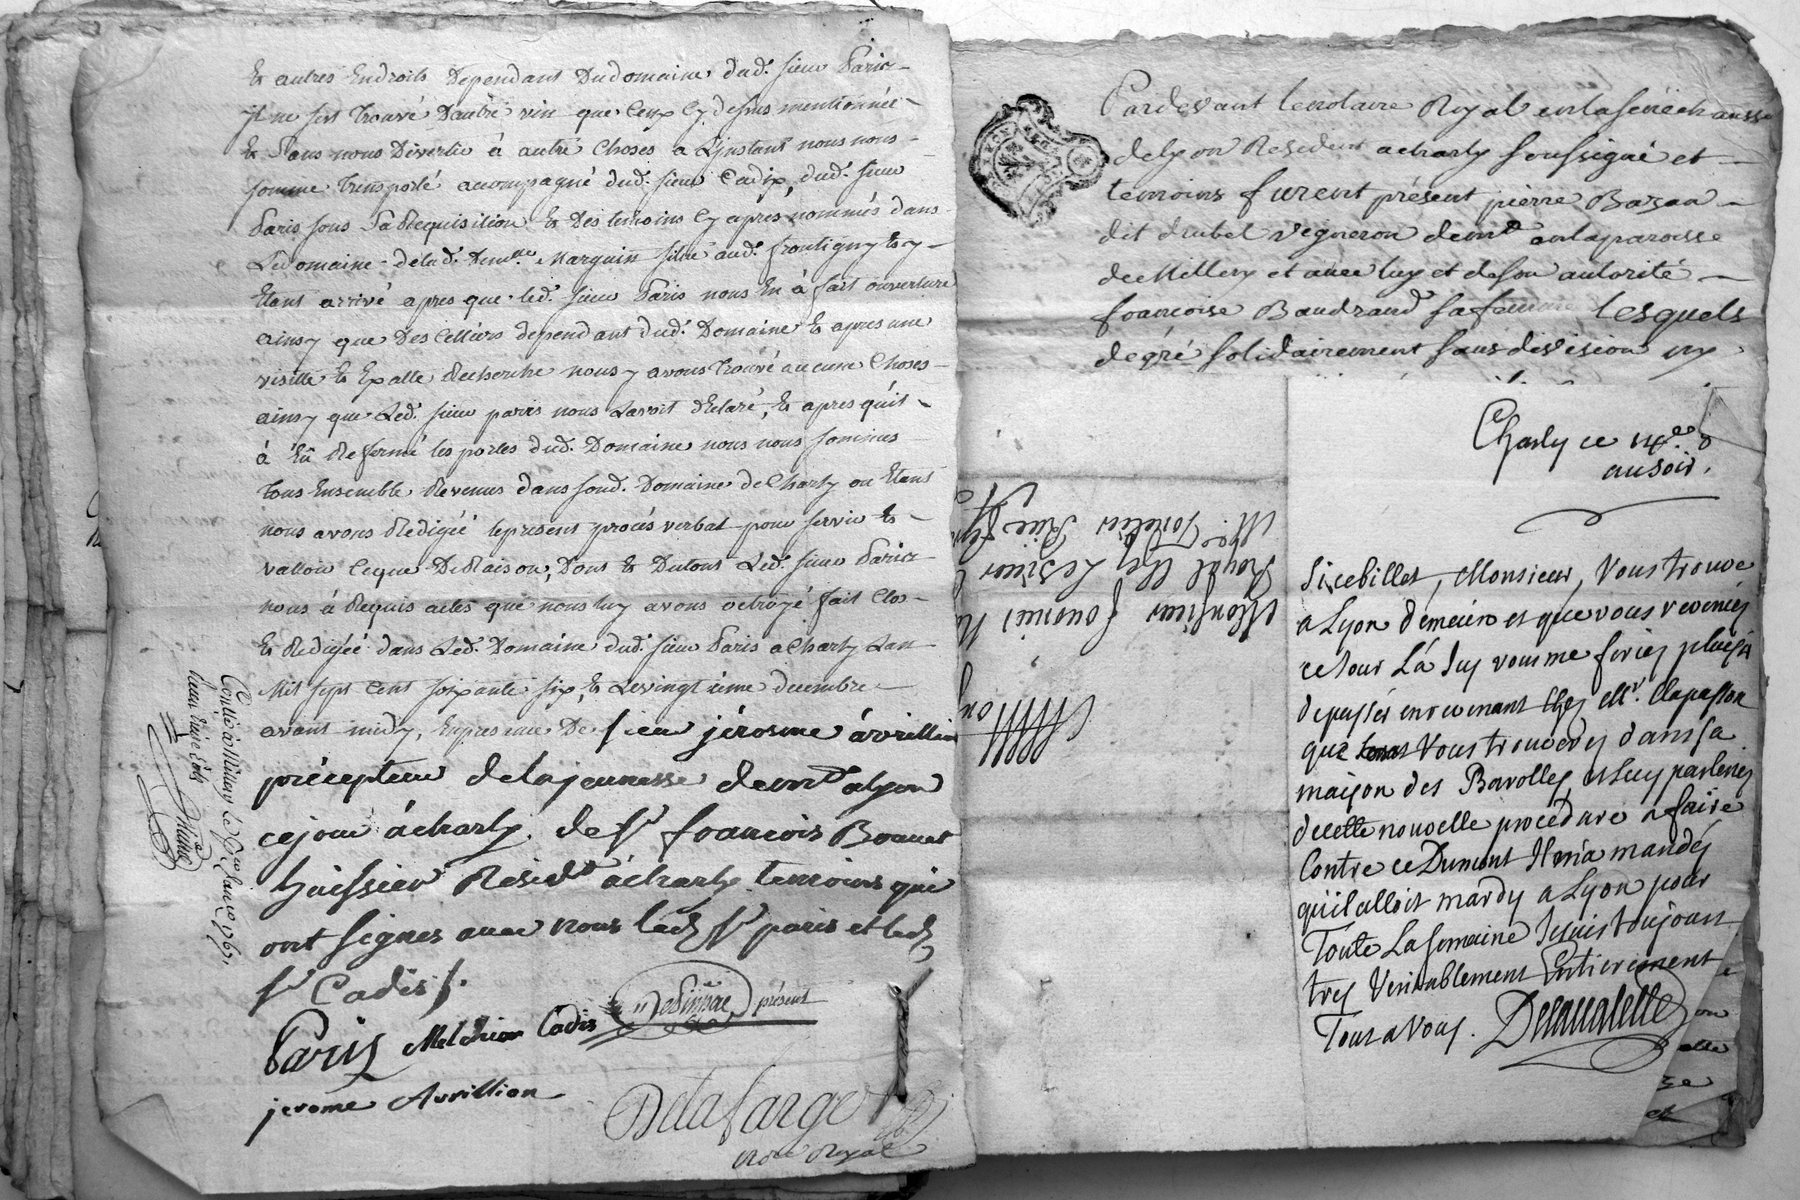 Et autres Endroits Dependant Dudomaine dud. sieur Paris
il ne sest trouvé Dautre vin que Ceux Cy dessus mentionnée
Et Sans nous Divertir à autre Choses a L'instant nous nous
somme Transporté accompagné dud. sieur Cadix, dud. sieur
Paris sous Sa Requisition Et Des temoins Cy aprés nommés dans
Le domaine de lad. Demlle Marguin situé aud. frontigny Et y
Etant arrivé apres que led. sieur Paris nous En à fait ouverture
ainsy que Des Celliers dependant dud. Domaine Et apres une
visitte Et Exatte Recherche nous y avons Trouvé aucune Choses
ainsy que Led. sieur paris nous Lavoit déClaré, Et apres quil
à Eû Refermé les portes dud. Domaine nous nous sommes
Tous Ensemble Revenus dans soud. Domaine de Charly ou Etant
nous avons Redigéé lepresent procés verbal pour servir Et
valloir Ceque DeRaison, Dont Et Dutout Led. sieur Paris
nous à Requis actes que nous luy avons octroyé fait Clo
Et Redigée dans Led. Domaine dud. sieur Paris a Charly Lan
Mil sept Cent soixante six, Et Levingtieme decembre
avant midy, En presence De sieur jérosme àvrillion
précepteur delajeunesse demt alyon
cejour àcharly. de Sr francois Bonnet
huissier Residt àcharly temoins qui
ont signes avec nous ledt Sr paris et led
Sr Cadis /.
Paris Melchior Cadis présent
jerome Avrillion
Delafarge
nore Royal
Contrôlé à Millery le janvr 1767.
Pardevant lenotaire Royal enlasénéchaussé
delyon Residant acharly soussigné et
temoins furent présent pierre Bazan
dit drubel vigneron demt enlaparoisse
de Millery et avec luy et desou autorité
francoise Baudrand safemme lesquels
degré solidairement sans division ny
Monsieur
Royal Chez
M.
Charly ce 14e
ausoir.
Sicebillet, Monsieur, Vous trouve
a Lyon demain et que vous reveniez
ce jour Là Icy vous me feriez plaisir
depasser en revenant Chez Mr. Clapasson
que Vous trouverez dans sa
maison des Barolles, et luy parleriez
decette nouvelle procedure a faire
Contre ce Dumont Il m'a mandéz
qu'il alloit mardy a Lyon pour
Toute La semaine Jesuis toujours
trez Veritablement Entierement
Tout a Vous. Delavalette